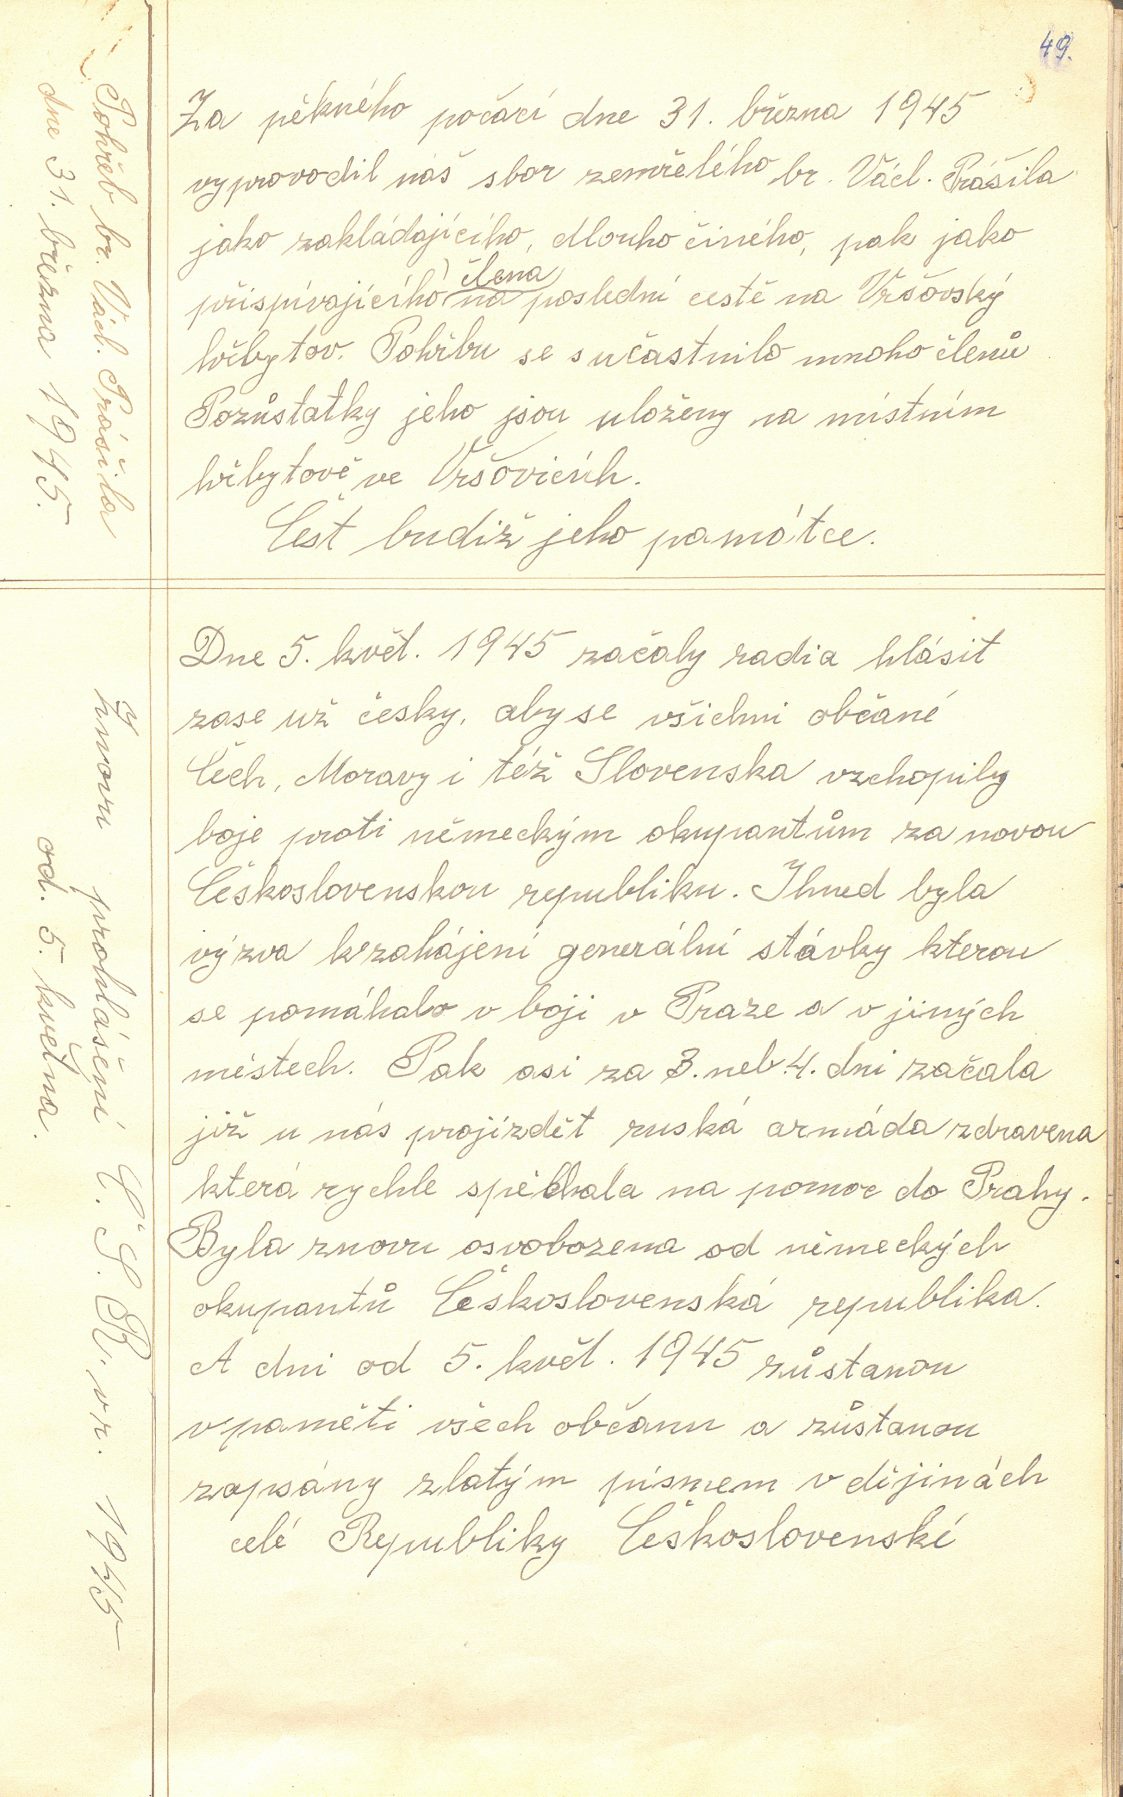 49.
Pohřeb br. Václ. Prášila
dne 31. března 1945.
Za pěkného počací dne 31. března 1945
vyprovodil náš sbor zemřelého br. Václ. Prášila
jako zakládajícího, dlouho činého, pak jako
člena
přispívajícího na poslední cestě na Vršovský
hřbytov. Pohřbu se sučastnilo mnoho členů
Pozůstatky jeho jsou uloženy na místním
hřbytově ve Vršovicích.
Čest budiž jeho památce.
Znovu prohlášení Č. S. R. v r. 1945
od. 5. května.
Dne 5. květ. 1945 začaly radia hlásit
zase už česky, aby se všichni občané
Čech, Moravy i též Slovenska vzchopily
boje proti německým okupantům za novou
Československou republiku. Ihned byla
výzva k zahájení generální stávky kterou
se pomáhalo v boji v Praze a v jiných
městech. Pak asi za 3. neb 4. dni začala
již u nás projízdět ruská armáda zdravena
která rychle spěchala na pomoc do Prahy.
Byla znovu osvobozena od německých
okupantů Československá republika.
A dni od 5. květ. 1945 zůstanou
v paměti všech občanu a zůstanou
zapsány zlatým písmem v dějinách
celé Republiky Československé